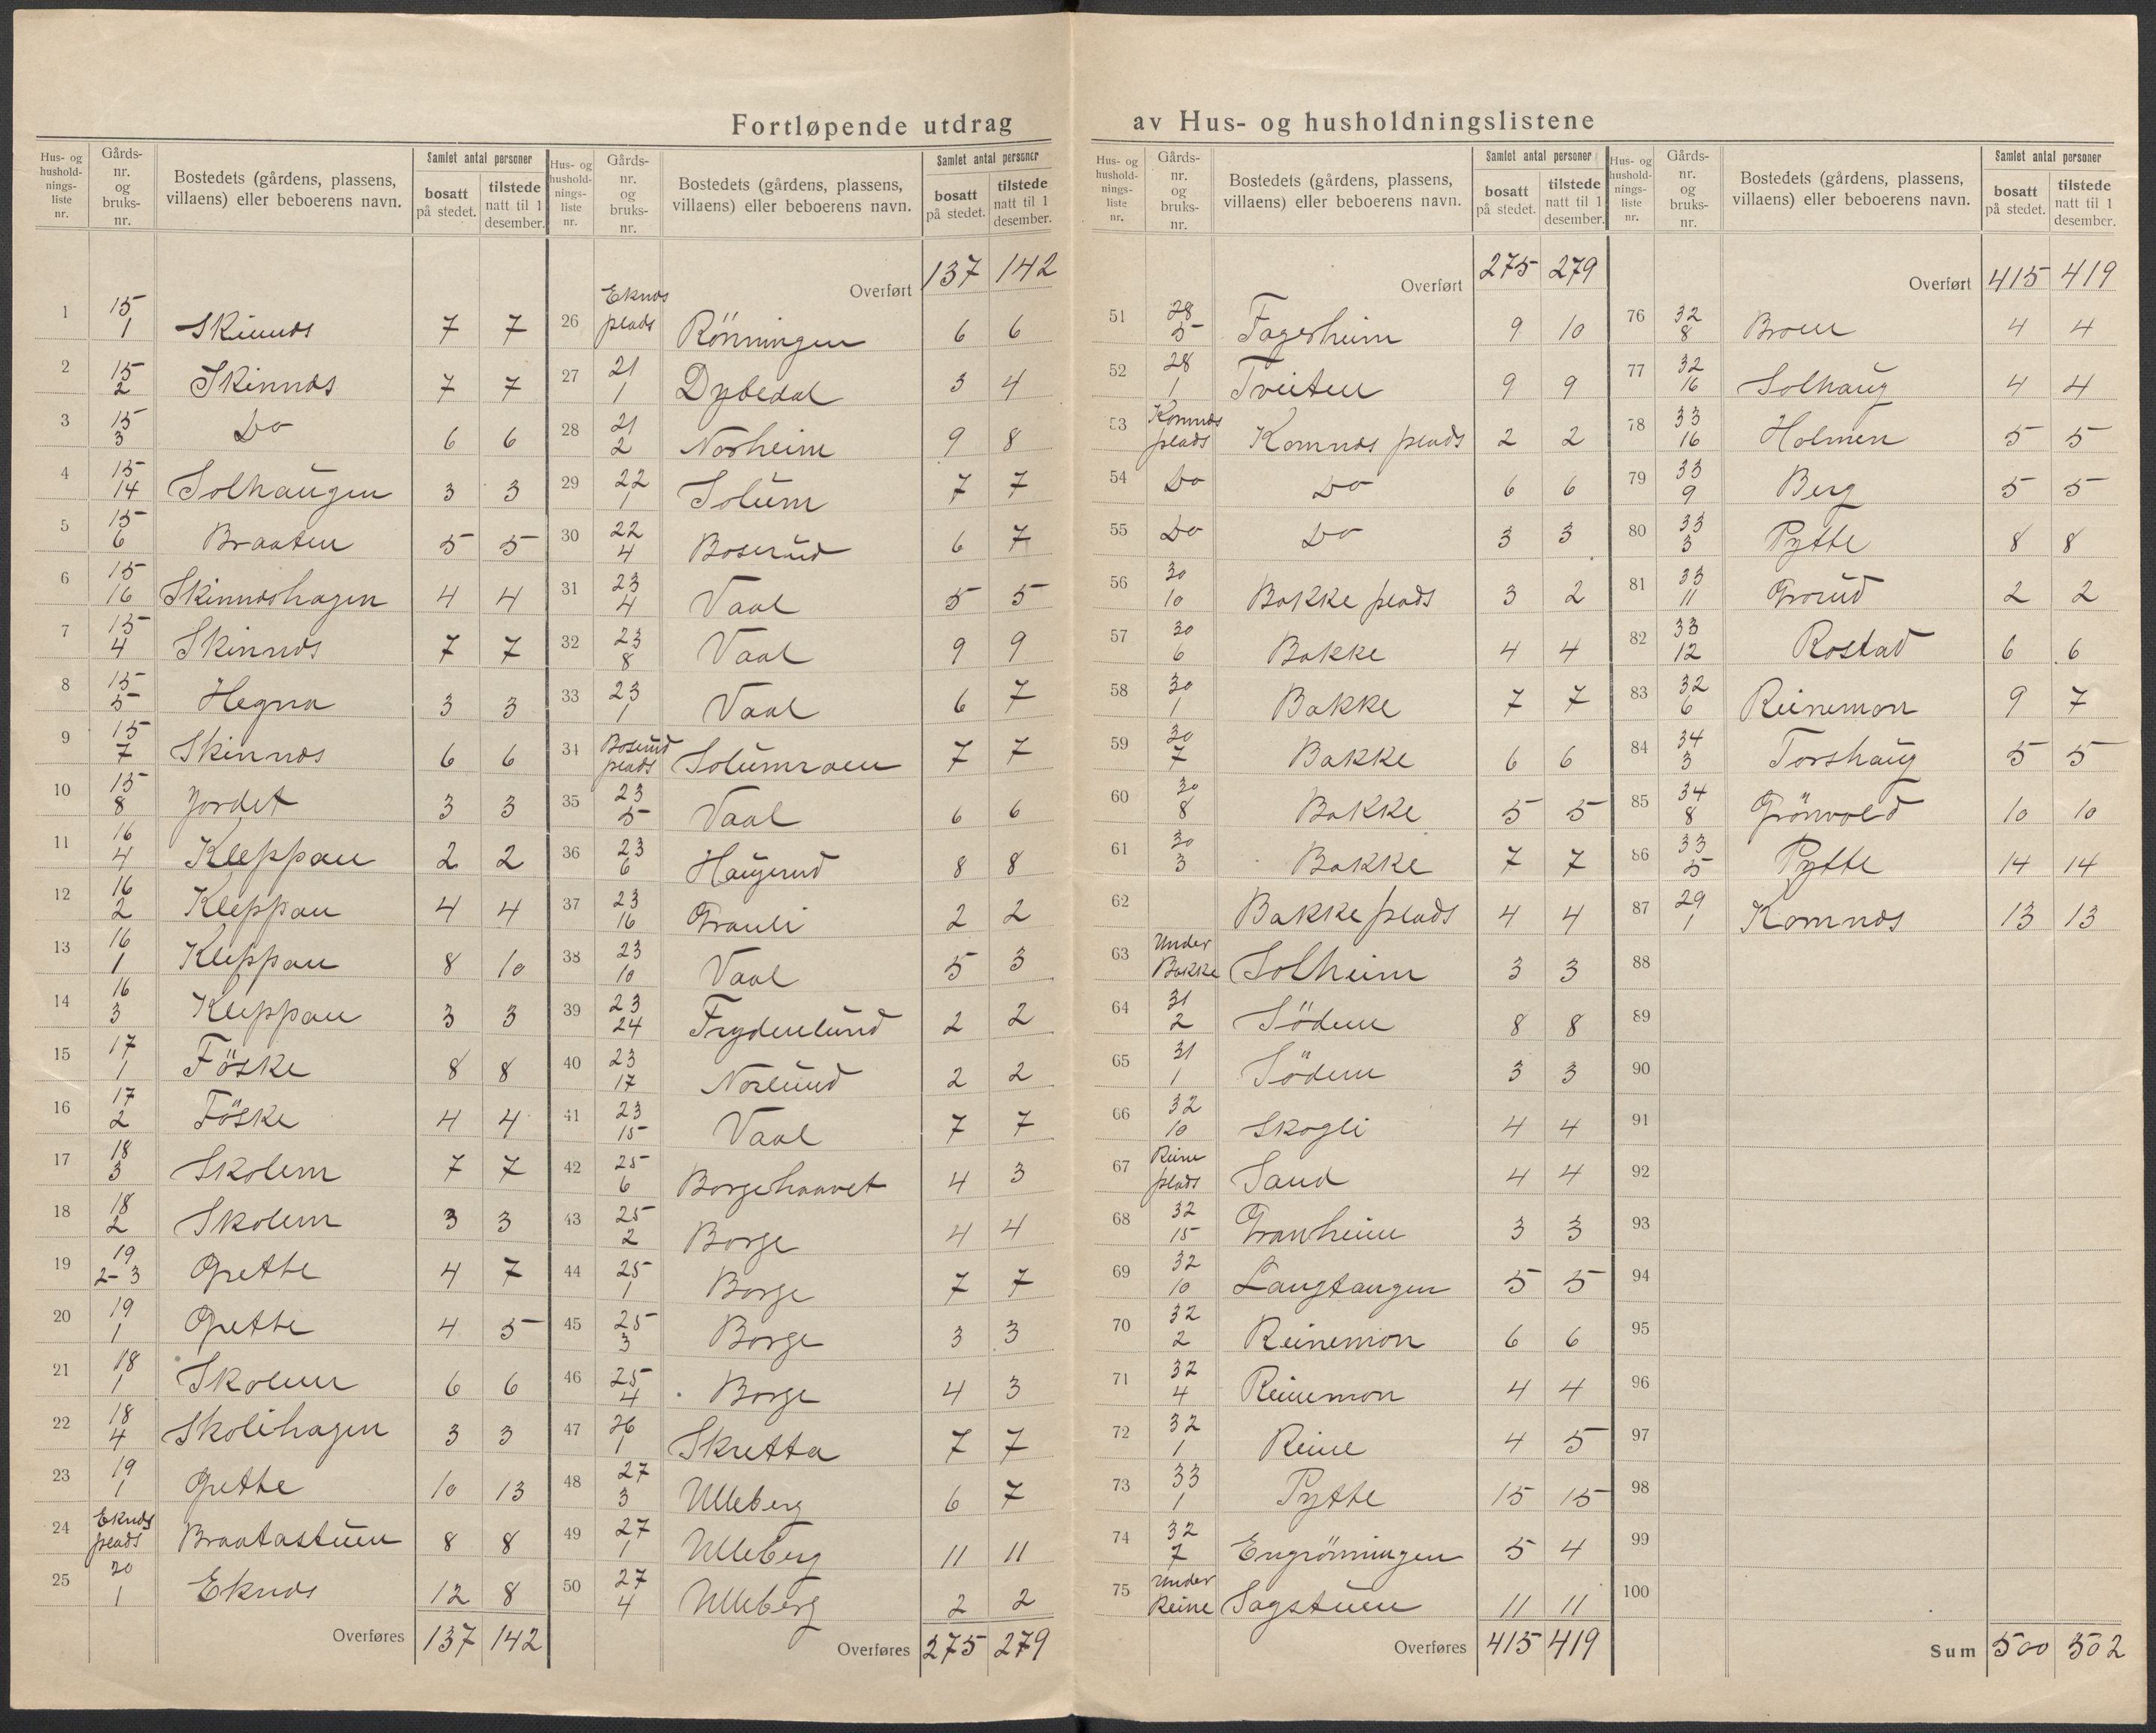 Fortløpende utdrag av Hus- og husholdningslistene
Hus- og husholdnings-liste nr. | Gårds-nr. og bruks-nr. | Bostedets (gårdens, plassens, villaens) eller beboerens navn. | Samlet antal personer | bosatt på stedet. | tilstede natt til 1 desember.
1 | 15 1 | Skinnes | 7 | 7
2 | 15 2 | Skinnes | 7 | 7
3 | 15 3 | Do | 6 | 6
4 | 15 14 | Solhaugen | 3 | 3
5 | 15 6 | Braaten | 5 | 5
6 | 15 16 | Skinneshagen | 4 | 4
7 | 15 4 | Skinnes | 7 | 7
8 | 15 5 | Hegna | 3 | 3
9 | 15 7 | Skinnes | 6 | 6
10 | 15 8 | Jordet | 3 | 3
11 | 16 4 | Kleppan | 2 | 2
12 | 16 2 | Kleppan | 4 | 4
13 | 16 1 | Kleppan | 8 | 10
14 | 16 3 | Kleppan | 3 | 3
15 | 17 1 | Föske | 8 | 8
16 | 17 2 | Föske | 4 | 4
17 | 18 3 | Skolem | 7 | 7
18 | 18 2 | Skolem | 3 | 3
19 | 19 2-3 | Grette | 4 | 7
20 | 19 1 | Grette | 4 | 5
21 | 18 1 | Skolem | 6 | 6
22 | 18 4 | Skolihagen | 3 | 3
23 | 19 1 | Grette | 10 | 13
24 | Eknes plads | Braatastuen | 8 | 8
25 | 20 1 | Eknes | 12 | 8
Overføres | 137 | 142
Hus- og husholdnings-liste nr. | Gårds-nr. og bruks-nr. | Bostedets (gårdens, plassens, villaens) eller beboerens navn. | Samlet antal personer | bosatt på stedet. | tilstede natt til 1 desember.
Overført | 137 | 142
26 | Eknes plads | Rönningen | 6 | 6
27 | 21 1 | Dybedal | 3 | 4
28 | 21 2 | Norheim | 9 | 8
29 | 22 1 | Solum | 7 | 7
30 | 22 4 | Boserud | 6 | 7
31 | 23 4 | Vaal | 5 | 5
32 | 23 8 | Vaal | 9 | 9
33 | 23 1 | Vaal | 6 | 7
34 | Boserud plads | Solumraen | 7 | 7
35 | 23 5 | Vaal | 6 | 6
36 | 23 6 | Haugerud | 8 | 8
37 | 23 16 | Granli | 2 | 2
38 | 23 10 | Vaal | 5 | 3
39 | 23 24 | Frydenlund | 2 | 2
40 | 23 17 | Norlund | 2 | 2
41 | 23 15 | Vaal | 7 | 7
42 | 25 6 | Borgehaavet | 4 | 3
43 | 25 2 | Borge | 4 | 4
44 | 25 1 | Borge | 7 | 7
45 | 25 3 | Borge | 3 | 3
46 | 25 4 | Borge | 4 | 3
47 | 26 1 | Skretta | 7 | 7
48 | 27 3 | Ulleberg | 6 | 7
49 | 27 1 | Ulleberg | 11 | 11
50 | 27 4 | Ulleberg | 2 | 2
Overføres | 275 | 279
Hus- og husholdnings-liste nr. | Gårds-nr. og bruks-nr. | Bostedets (gårdens, plassens, villaens) eller beboerens navn. | Samlet antal personer | bosatt på stedet. | tilstede natt til 1 desember.
Overført | 275 | 279
51 | 28 5 | Fagerheim | 9 | 10
52 | 28 1 | Tveiten | 9 | 9
53 | Komnes plads | Komnes plads | 2 | 2
54 | Do | Do | 6 | 6
55 | Do | Do | 3 | 3
56 | 30 10 | Bakke plads | 3 | 2
57 | 30 6 | Bakke | 4 | 4
58 | 30 1 | Bakke | 7 | 7
59 | 30 7 | Bakke | 6 | 6
60 | 30 8 | Bakke | 5 | 5
61 | 30 3 | Bakke | 7 | 7
62 | Bakke plads | 4 | 4
63 | Under Bakke | Solheim | 3 | 3
64 | 31 2 | Södem | 8 | 8
65 | 31 1 | Södem | 3 | 3
66 | 32 10 | Skogli | 4 | 4
67 | Reine plads | Sand | 4 | 4
68 | 32 15 | Granheim | 3 | 3
69 | 32 10 | Langtangen | 5 | 5
70 | 32 2 | Reinemon | 6 | 6
71 | 32 4 | Reinemon | 4 | 4
72 | 32 1 | Reine | 4 | 5
73 | 33 1 | Pytte | 15 | 15
74 | 32 7 | Engrönningen | 5 | 4
75 | Under Reine | Sagstuen | 11 | 11
Overføres | 415 | 419
Hus- og husholdnings-liste nr. | Gårds-nr. og bruks-nr. | Bostedets (gårdens, plassens, villaens) eller beboerens navn. | Samlet antal personer | bosatt på stedet. | tilstede natt til 1 desember.
Overført | 415 | 419
76 | 32 8 | Broen | 4 | 4
77 | 32 16 | Solhaug | 4 | 4
78 | 33 16 | Holmen | 5 | 5
79 | 33 9 | Berg | 5 | 5
80 | 33 3 | Pytte | 8 | 8
81 | 33 11 | Grorud | 2 | 2
82 | 33 12 | Rostad | 6 | 6
83 | 32 6 | Reinemon | 9 | 7
84 | 34 3 | Torshaug | 5 | 5
85 | 34 8 | Grönvold | 10 | 10
86 | 33 5 | Pytte | 14 | 14
87 | 29 1 | Komnes | 13 | 13
88
89
90
91
92
93
94
95
96
97
98
99
100
Sum | 500 | 502